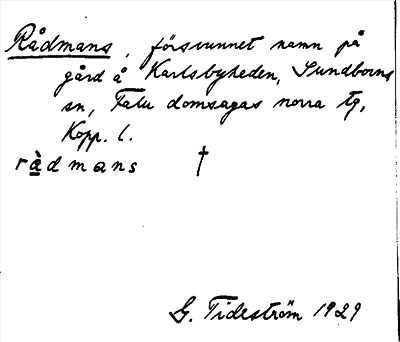 Rådmans, försvunnet namn på
gård å Karlsbyheden, Sundborns
sn, Falu domsagas norra tg,
Kopp. l.
rå̀dmans †
G. Tideström 1929